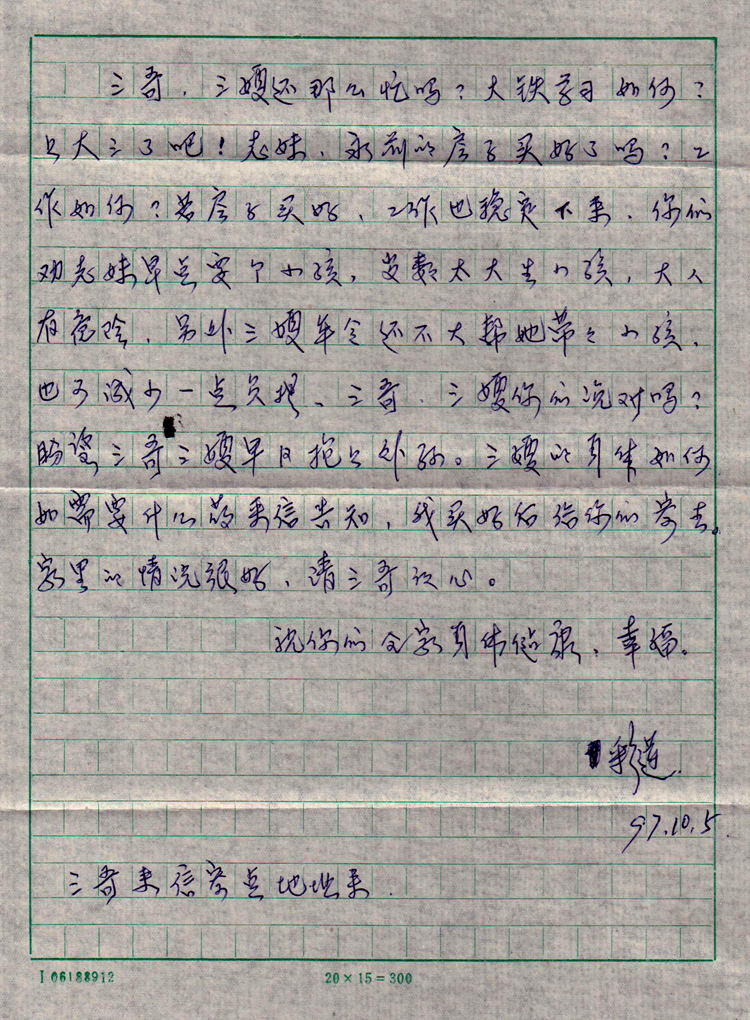 三哥、三嫂还那么忙吗？大铁学习如何？
上大三了吧！志妹、永前的房子买好了吗？工
作如何？若房子买好、工作也稳定下来、你们
劝志妹早点要个小孩，岁数太大生小孩，大人
有危险、另外三嫂年令还不大帮她带之小孩、
也可减少一点负担、三哥、三嫂你们说对吗？
盼望三哥三嫂早日抱上外孙。三嫂的身体如何
如需要什么药来信告知，我买好后给你们寄去。
家里的情况很好、请三哥放心。
祝你们全家身体健康、幸福。
彩莲
97.10.5
三哥来信寄点地址来.
I 06188912
20×15=300